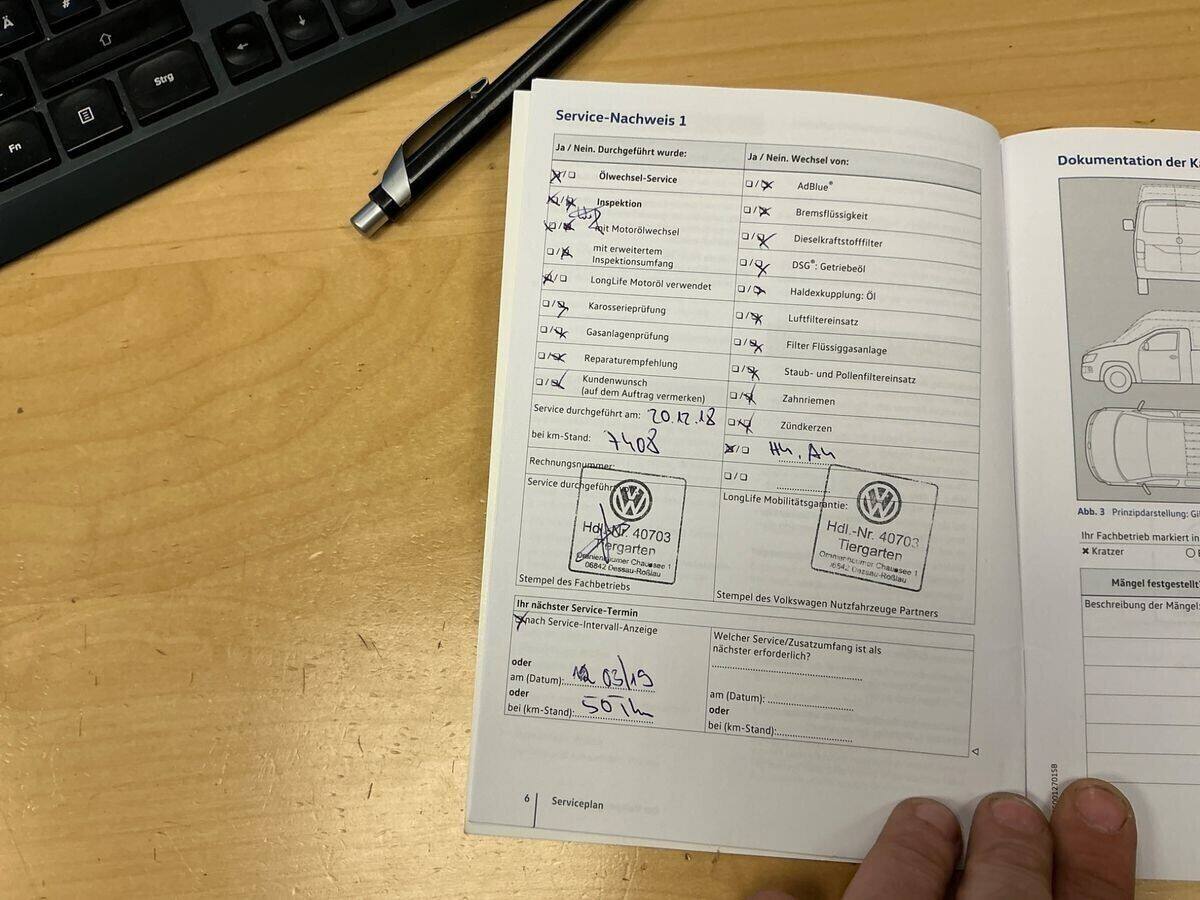 Ä
#
Strg
Fn
Service-Nachweis 1
Ja / Nein. Durchgeführt wurde:
Ölwechsel-Service
Inspektion
mit Motorölwechsel
mit erweitertem
Inspektionsumfang
LongLife Motoröl verwendet
Karosserieprüfung
Gasanlagenprüfung
Reparaturempfehlung
Kundenwunsch
(auf dem Auftrag vermerken)
Service durchgeführt am: 20.12.18
bei km-Stand: 7408
Rechnungsnummer:
Service durchgeführt von:
Hdl.-Nr. 40703
Tiergarten
Oranienbaumer Chaussee 1
06842 Dessau-Roßlau
Stempel des Fachbetriebs
Ja / Nein. Wechsel von:
AdBlue®
Bremsflüssigkeit
Dieselkraftstofffilter
DSG®: Getriebeöl
Haldexkupplung: Öl
Luftfiltereinsatz
Filter Flüssiggasanlage
Staub- und Pollenfiltereinsatz
Zahnriemen
Zündkerzen
LongLife Mobilitätsgarantie:
Hdl.-Nr. 40703
Tiergarten
Oranienbaumer Chaussee 1
06842 Dessau-Roßlau
Stempel des Volkswagen Nutzfahrzeuge Partners
Ihr nächster Service-Termin
nach Service-Intervall-Anzeige
oder
am (Datum): 03/19
oder
bei (km-Stand):
Welcher Service/Zusatzumfang ist als
nächster erforderlich?
am (Datum):
oder
bei (km-Stand):
6 Serviceplan
Dokumentation der
Abb. 3 Prinzipdarstellung:
Ihr Fachbetrieb markiert in
Kratzer
Mängel festgestellt?
Beschreibung der Mängel: